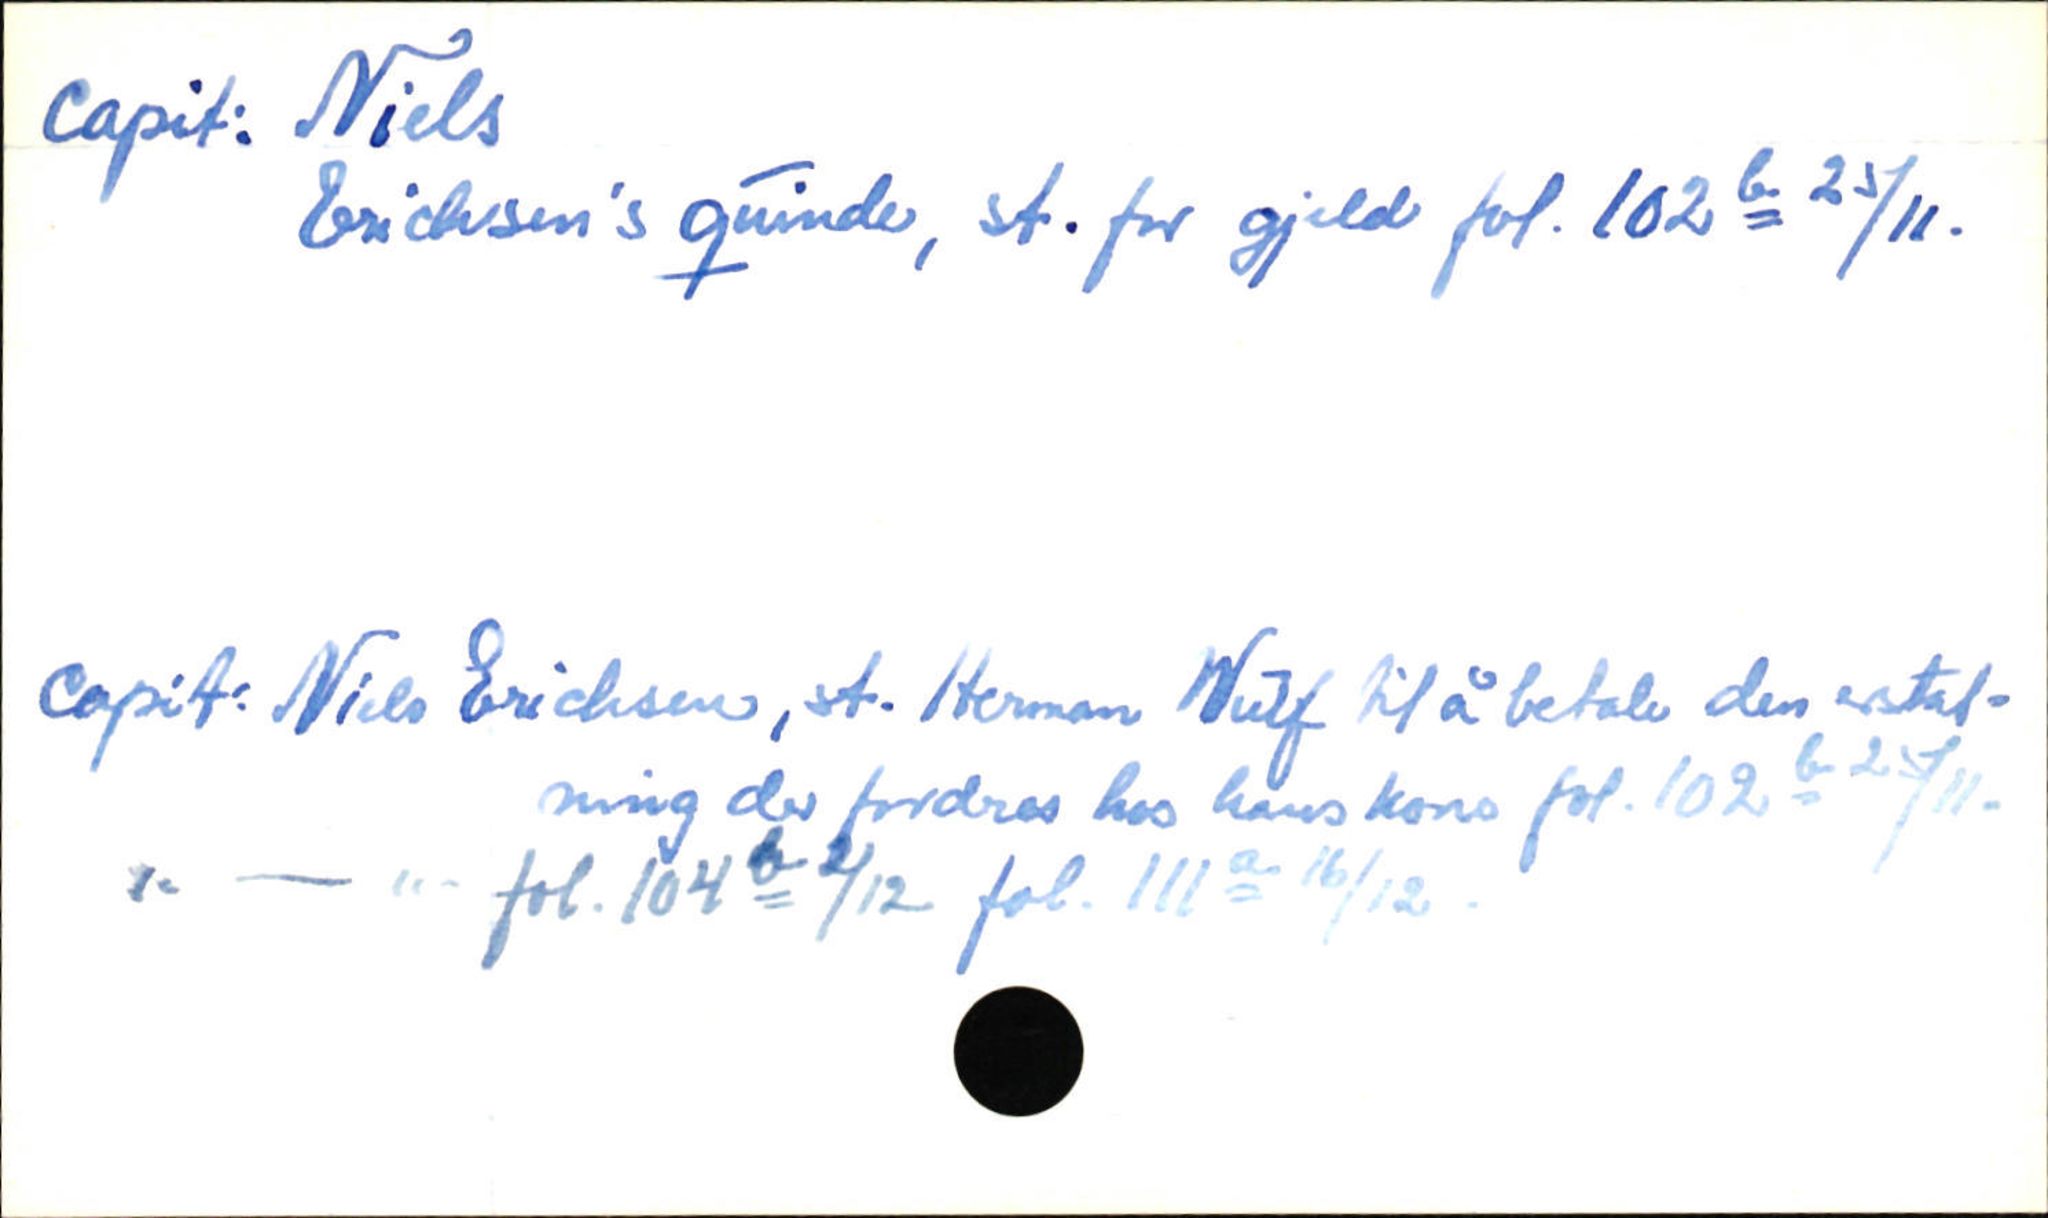 Capit: Niels
Erichsen's quinde, st. for gjeld fol. 102 b 25/11.
Capit: Niels Erichsen, st. Herman Wulf til å betale den erstat-
ning der fordres hos hans kone fol. 102 b 25/11.
" — " fol. 104 b 2/12 fol. 111 a 16/12.